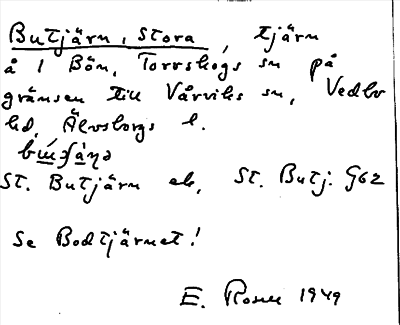 Butjärn, Stora, tjärn
å 1 Bön, Torrskogs sn på
gränsen till Vårviks sn, Vedbo
hd, Älvsborgs l.
St. Butjärn ek, St. Butj. G62
Se Bodtjärnet!
E. Rosen 1949